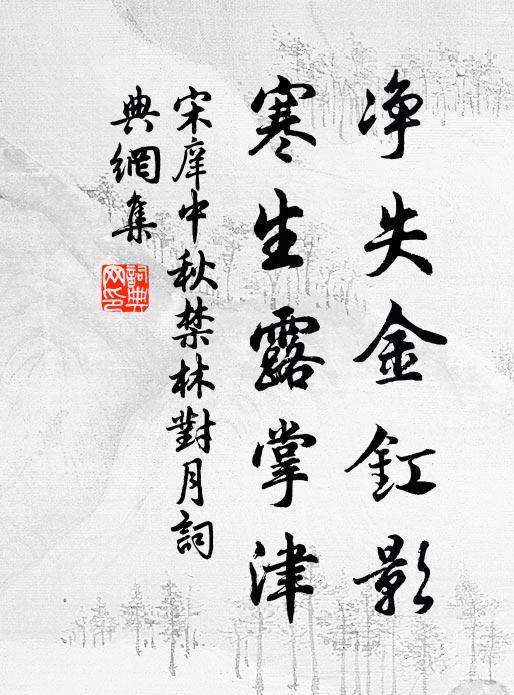 净失金釭影
寒生露掌津
宋庠中秋禁林對月詞
典網集
詞典
网印